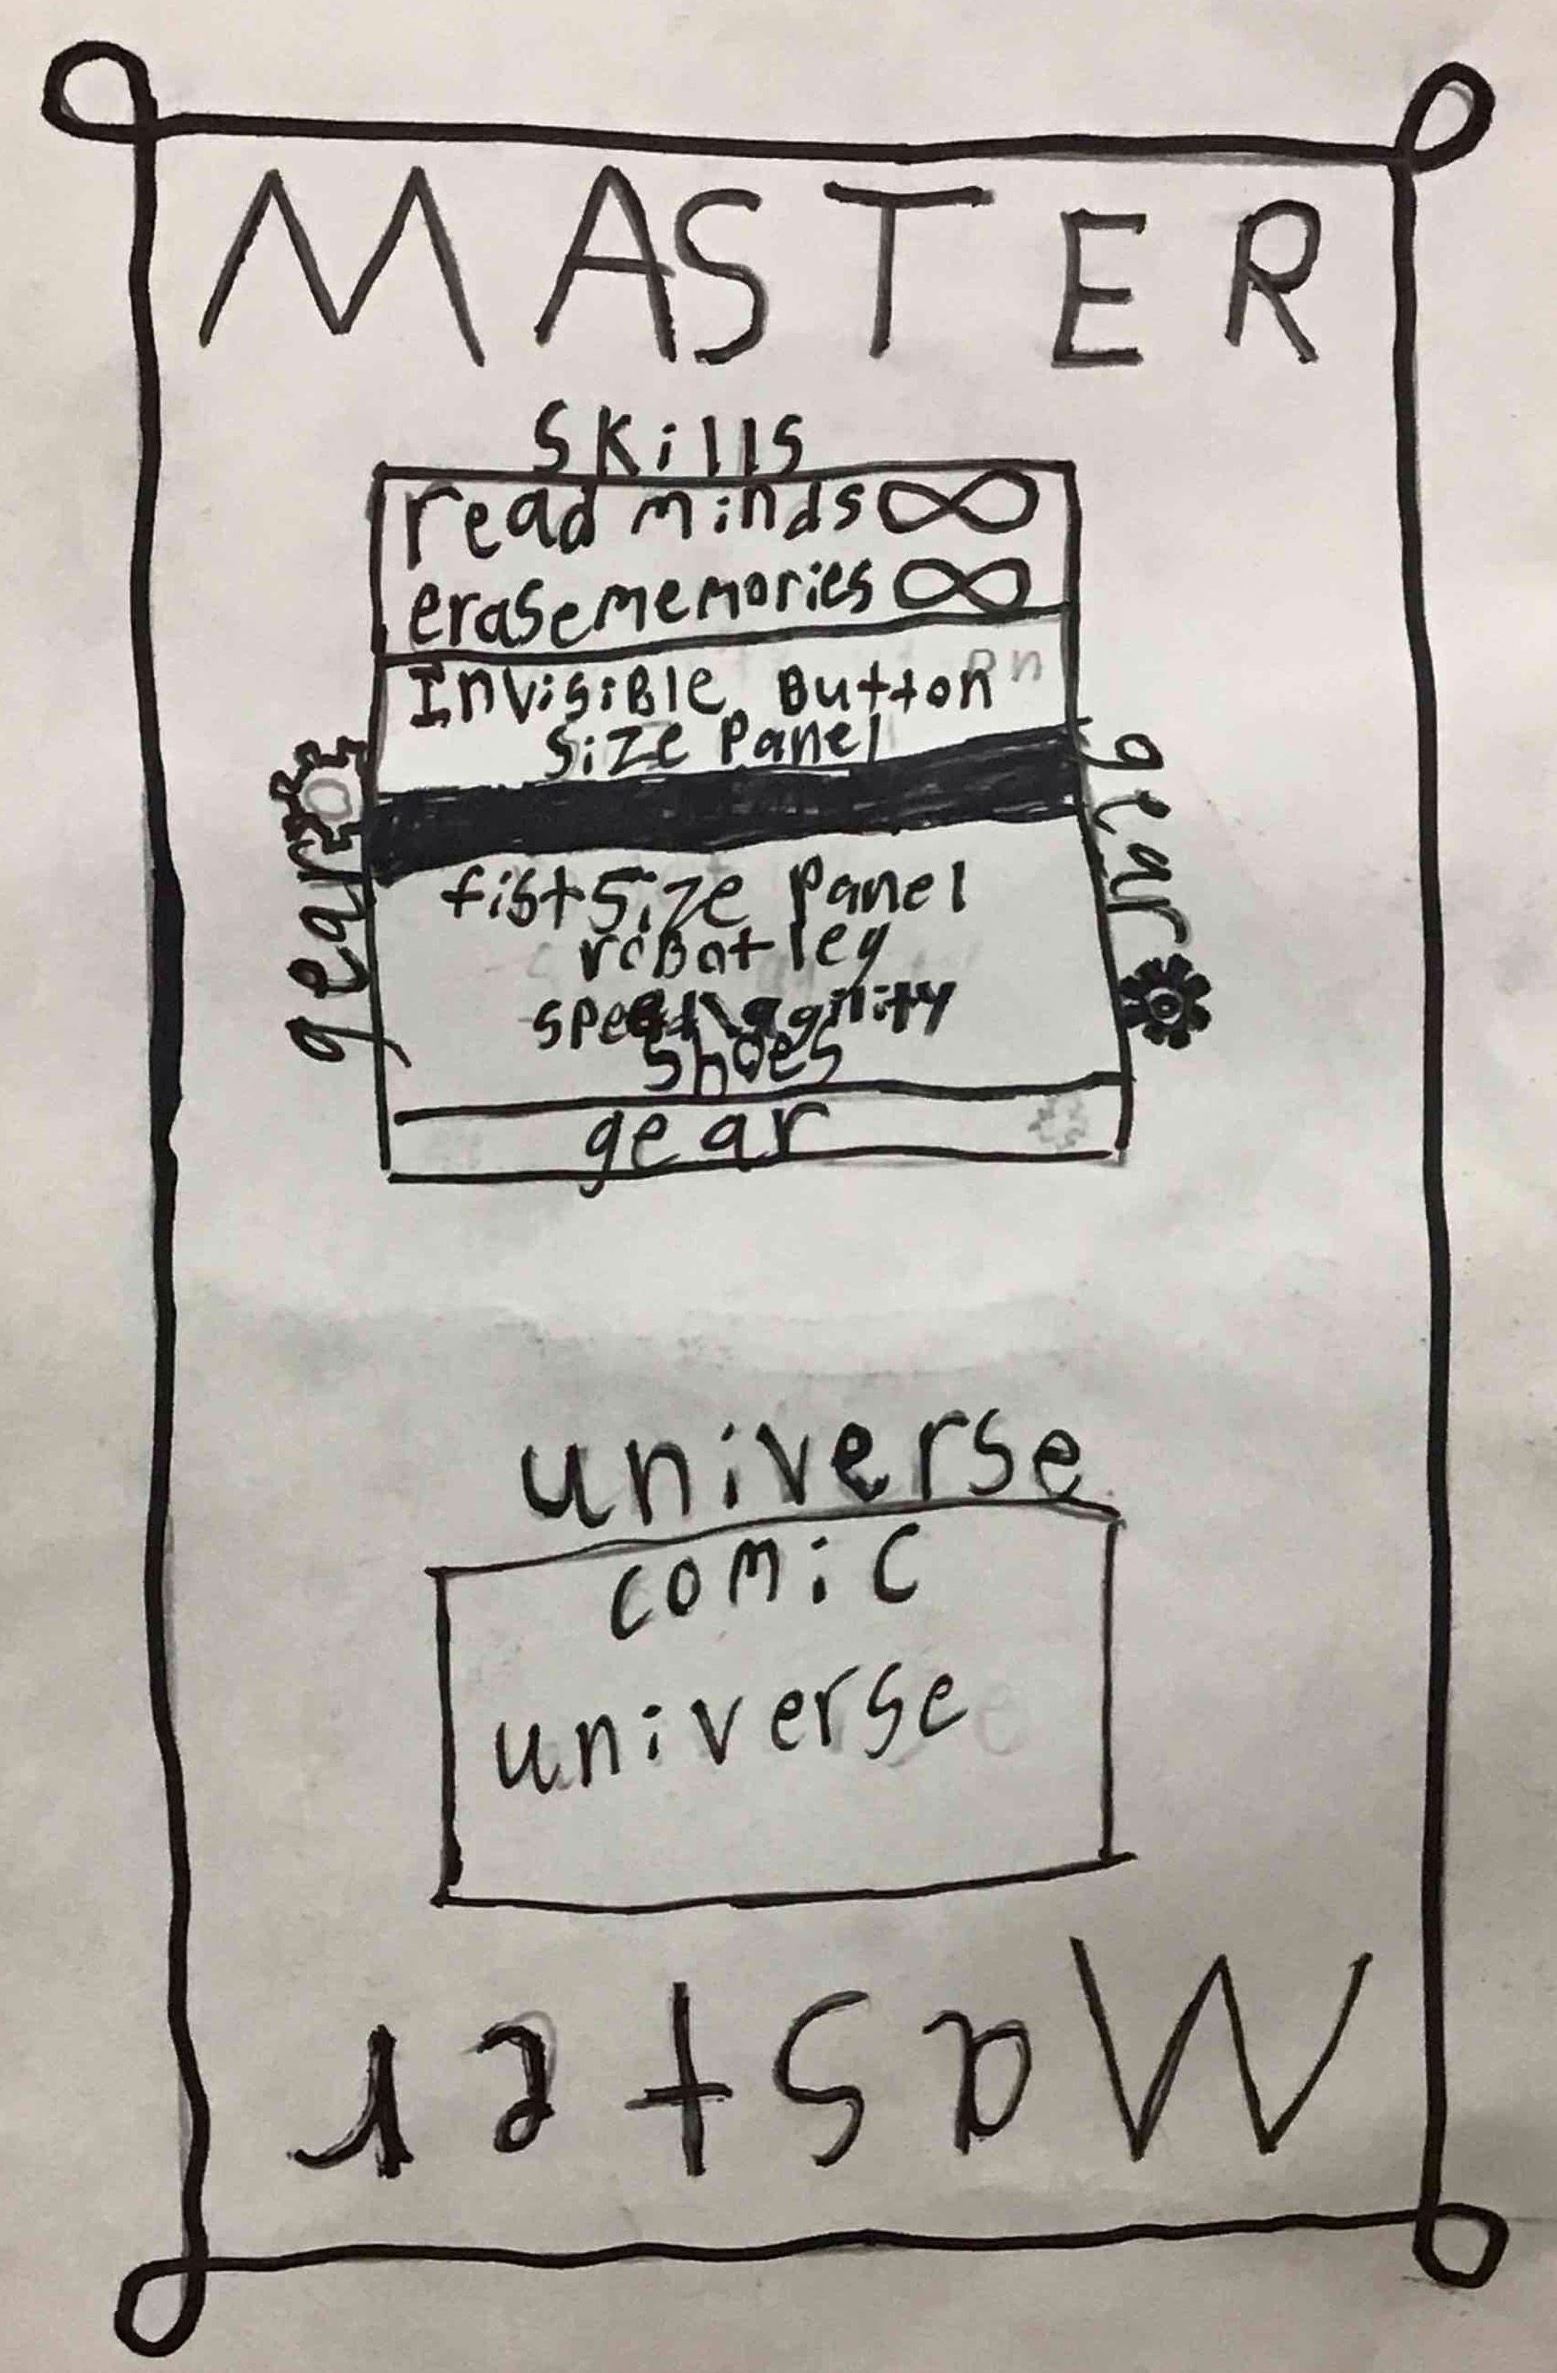 MASTER
skills
read minds ∞
erase memories ∞
InvisiBle Button
size Panel
gear
gear
fist size Panel
roBot leg
speed\agility
shoes
gear
universe
comic
universe
Master